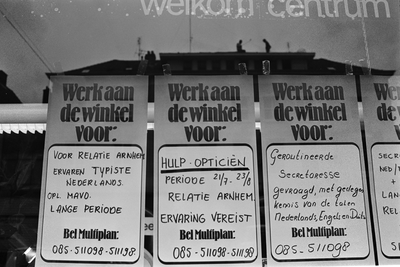 welkom centrum
Werk aan
de winkel
voor:
VOOR RELATIE ARNHEM
ERVAREN TYPISTE
NEDERLANDS.
OPL. MAVO.
LANGE PERIODE
Bel Multiplan:
085-511098-511198
Werk aan
de winkel
voor:
HULP-OPTICIËN
PERIODE 21/7-23/8
RELATIE ARNHEM.
ERVARING VEREIST
Bel Multiplan:
085-511098-511198
Werk aan
de winkel
voor:
Geroutineerde
Secretaresse
gevraagd, met gedegen
kennis van de talen
Nederlands, Engels en Duits
Bel Multiplan:
085-511098
Werk
de w
vo
SECR
NED/
+
LAN
REL